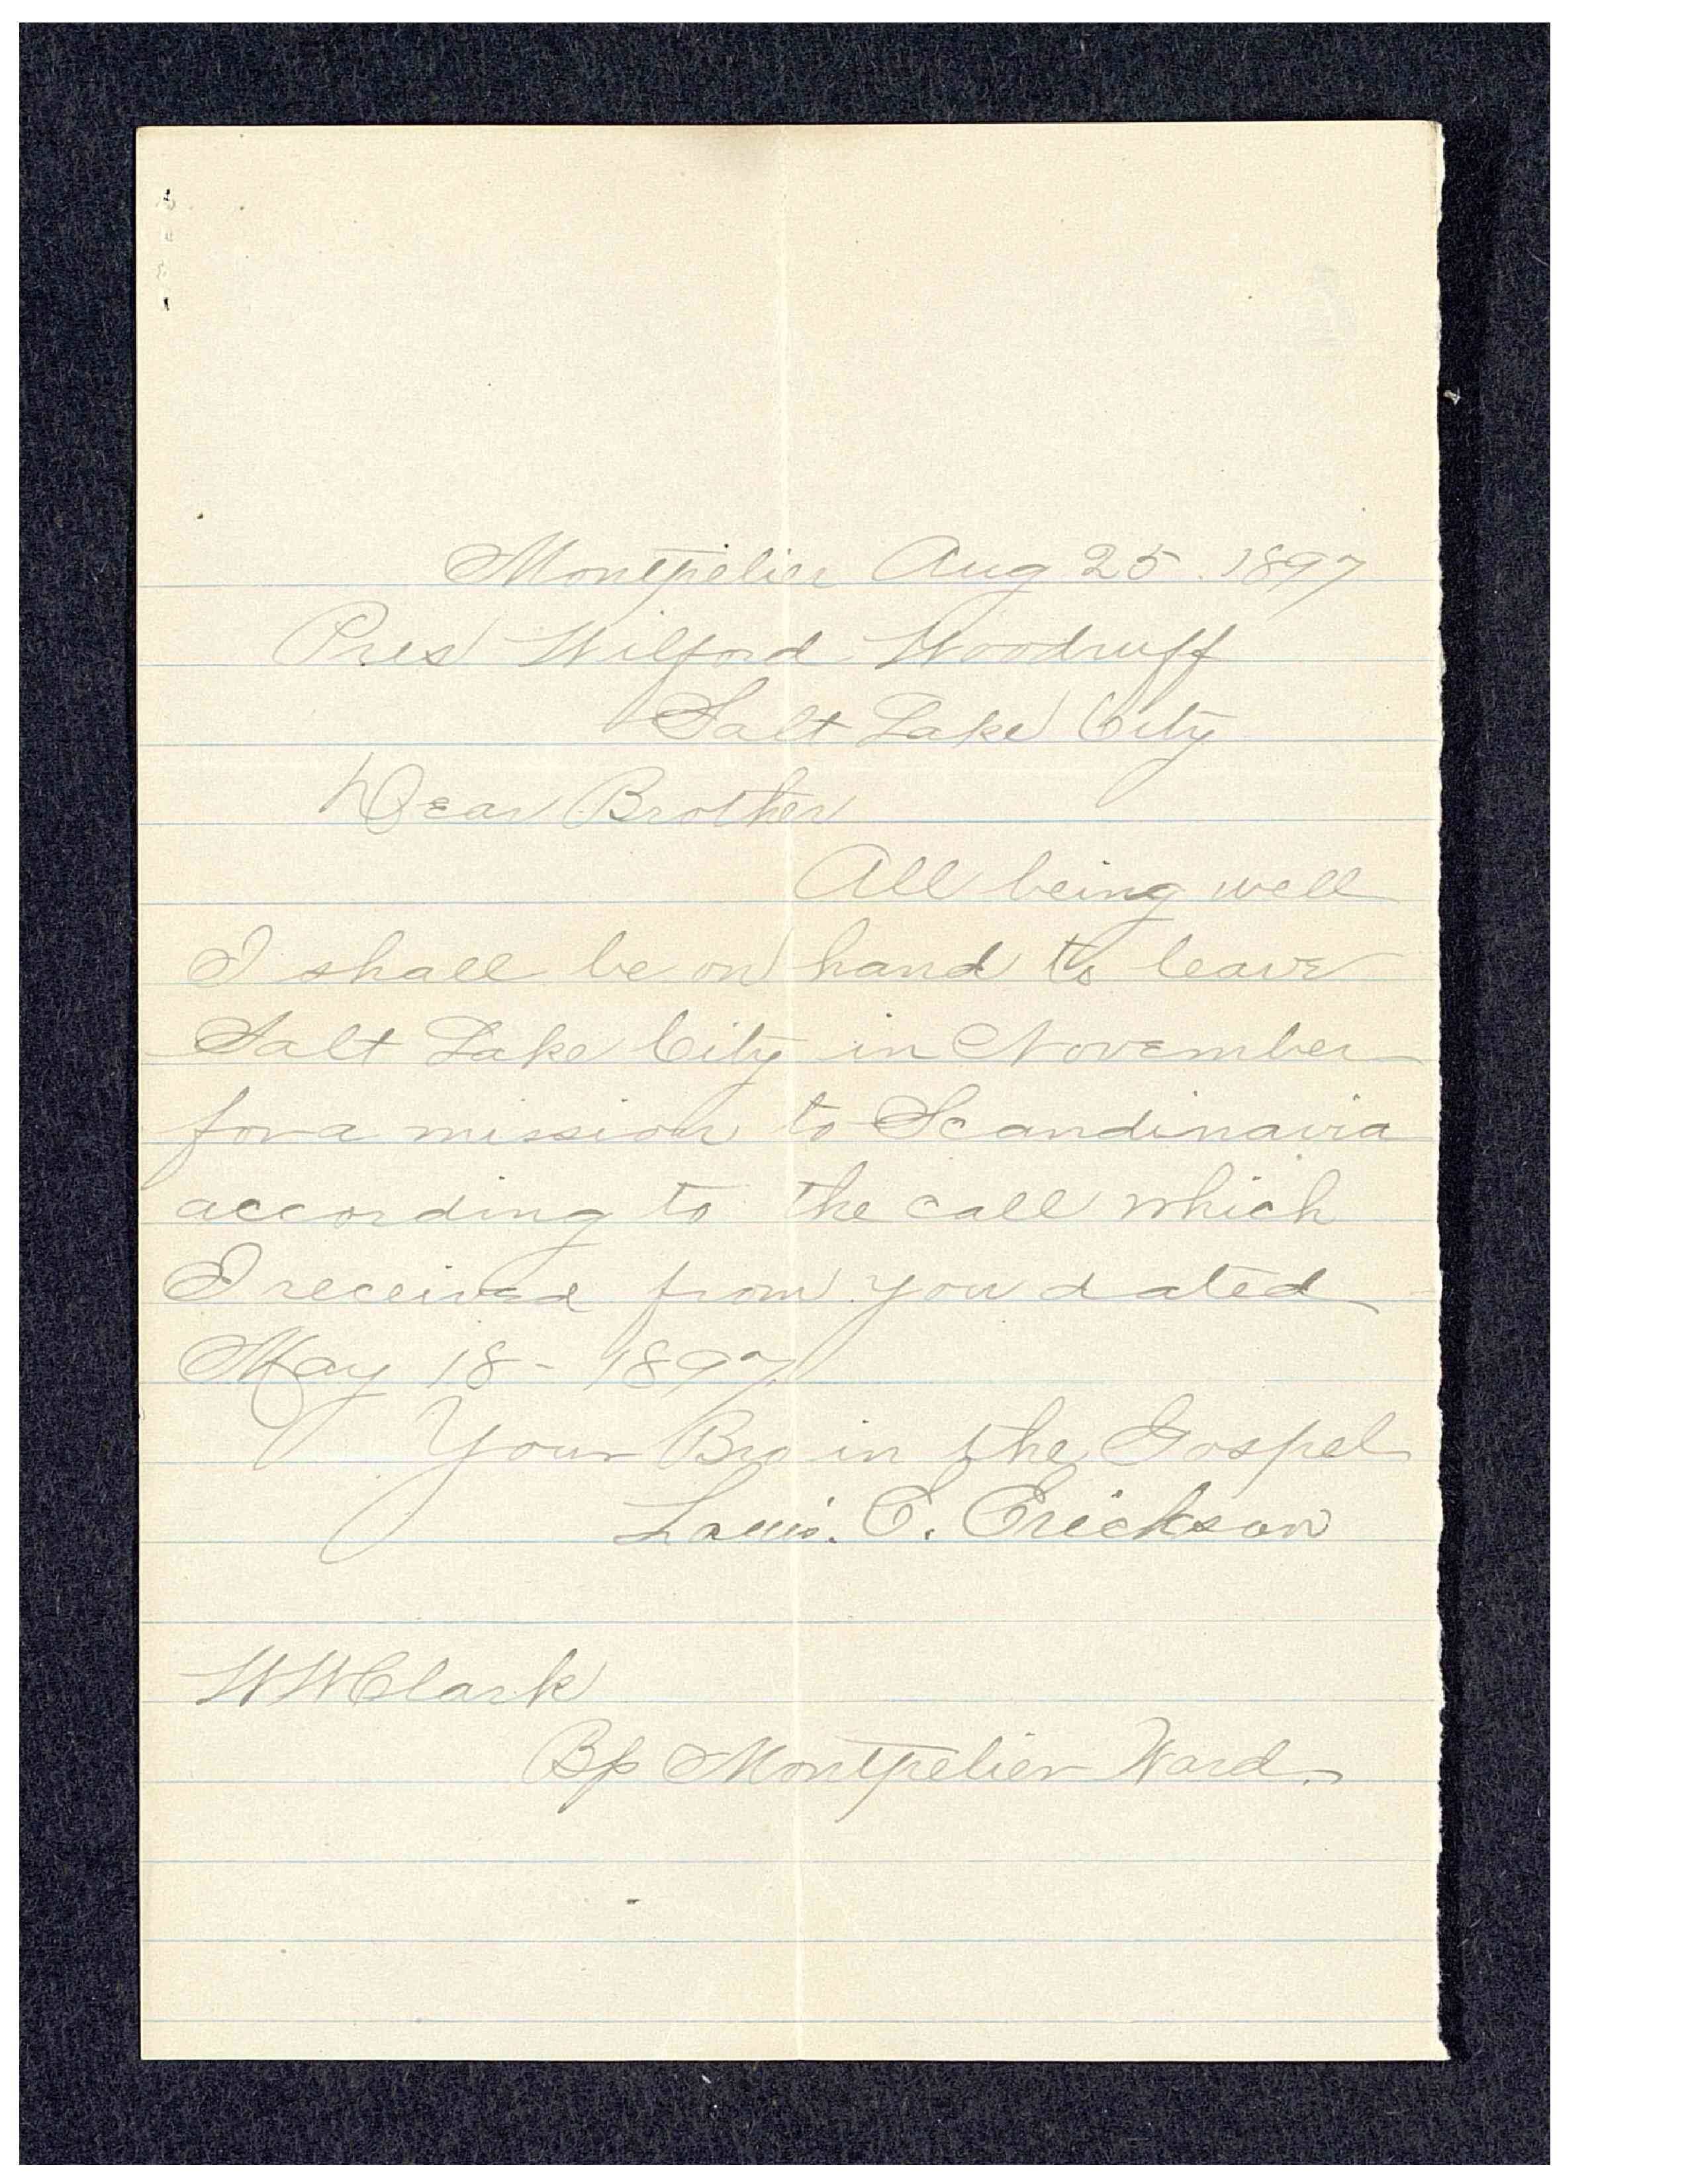 Montpelier Aug 25. 1897
Pres Wilford Woodruff
Salt Lake City
Dear Brother
All being well
I shall be on hand to leave
Salt Lake City in November
for a mission to Scandinavia
according to the call which
I received from you dated
May 18 - 1897
Your Bro in the Gospel
Louis. E. Erickson
W W Clark
Bp Montpelier Ward.